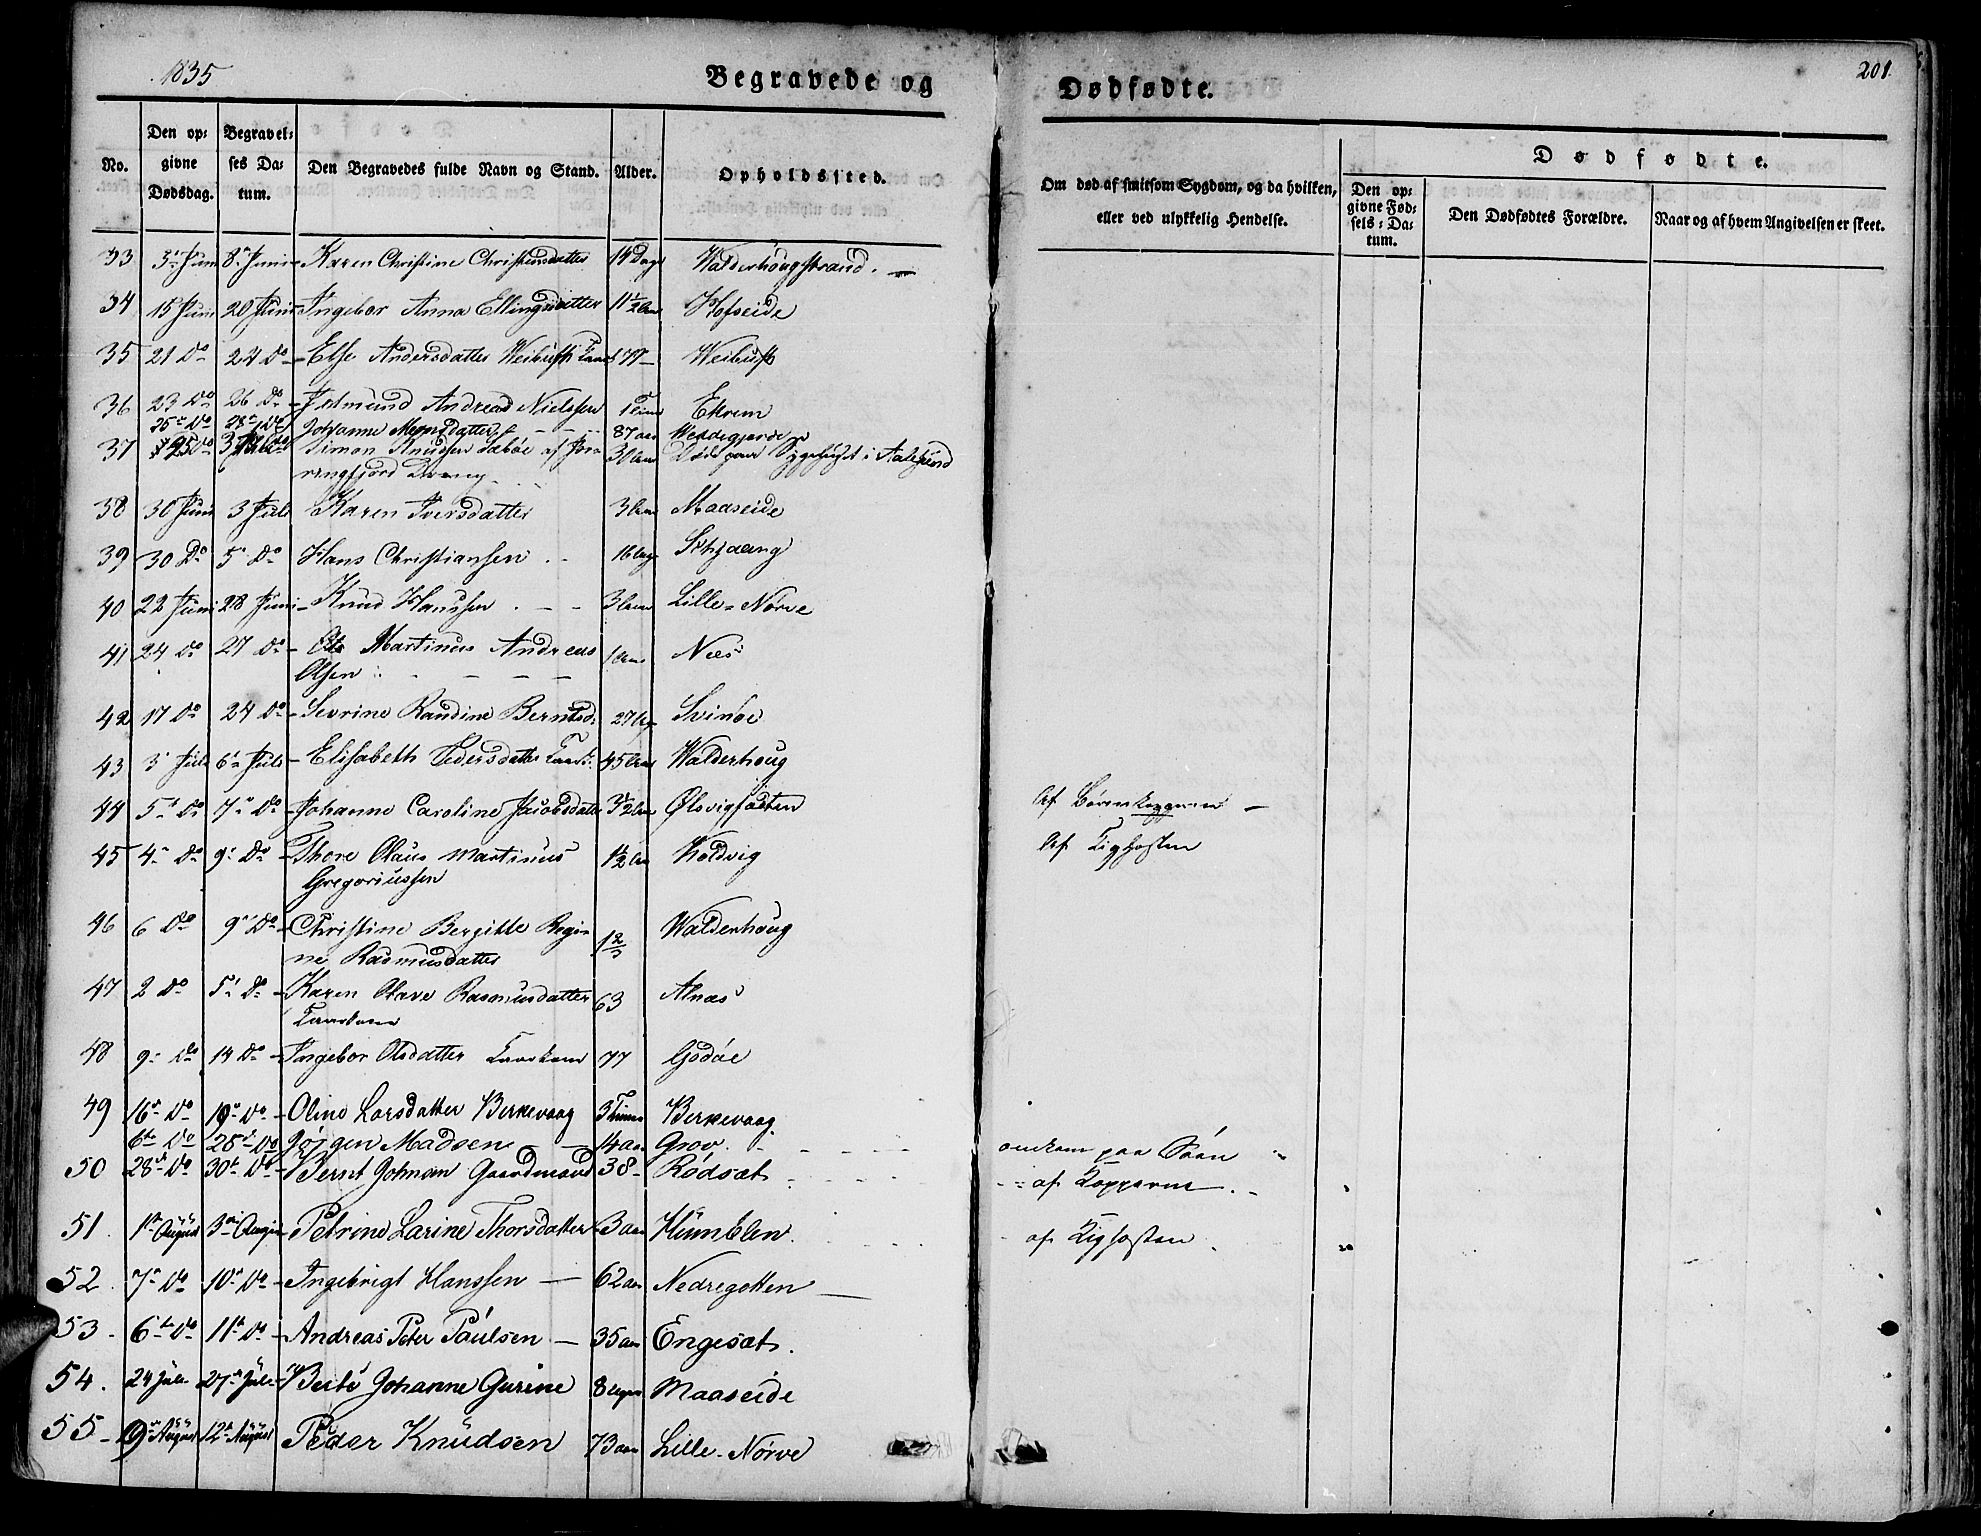 1835 Begravede og Dødfødte. 201.
No. Den opgivne Dødsdag. Begravelses Datum. Den Begravedes fulde Navn og Stand. Alder. Opholdssted. Om død af smitsom Sygdom, og da hvilken, eller ved ulykkelig Hendelse. Dødfødte.
Den opgivne Fødsels-Datum. Den Dødfødtes Forældre. Naar og af hvem Angivelsen er skeet.
33 3 Juni 8 Juni Karen Christine Christensdatter 14 Dage Walderhougstrand.
34 15 Juni 20 Juni Ingebor Anna Ellingsdatter 11 1/2 Hofseide
35 21 Do 24 Do Else Andersdatter Weibust Weibust
36 23 Do 26 Do Edmund Andreas Nielssen 1 Time Ekrem
25 Do 28 Do Johanne Mognsdatter 87 aar
37 Simon Knudsen Sæbøe af Jør- 3 Døde paa Sygehuset i Aalesund
ringfjord Dreng
38 30 Juni 3 Juli Karen Iversdatter 3 Maaseide
39 30 Do 5 Do Hans Christiansen 16 Skjaang
40 22 Juni 28 Juni Knud Hanssen 3 Lille-Nørve
41 24 Do 27 Do Ole Martinus Andreas 1 Næs
Olsen
42 17 Do 24 Do Sevrine Randine Berntsd: 27 Svinøe
43 3 Juli 6 Juli Elisabeth Pedersdatter 45 Walderhoug
44 5 Do 7 Do Johanne Caroline Jacobsdatter 3 1/2 Ølsvigsæten Af Børnekopperne
45 4 Do 9 Do Thore Olaus Martinus 1 1/2 Koldvig Af Kighosten
Gregoriussen
46 6 Do 9 Do Christine Bergitte Regi- 1 2/3 Walderhoug
ne Rasmusdatter
47 2 Do 5 Do Karen Olave Rasmusdatter 63 Alnæs
48 9 Do 14 Do Ingebor Olsdatter 77 Godøe
49 16 Do 19 Do Oline Larsdatter Berkevaag 3 Timer Berkevaag
6te Do 28 Do Jørgen Madsen 14 aar Grov omkom paa Søen
50 28 Do 30 Do Bernt Johnan Gaardmand 38 Rødsæt af Kopperne
51. 1ste August 3 August Petrine Larine Thorsdatter 3 aar Humblen. af Kighosten
52. 7 Do 10 Do Ingebrigt Hanssen 62 aar Nedregotten
53. 6 Do 11 Do Andreas Peter Paulsen 35 aar Engesæt.
54. 24 Juli 27 Juli Berte Johanne Gurine 8 Maaseide
55 9 August 12 August Peder Knudsen 73 aar Lille-Nørve